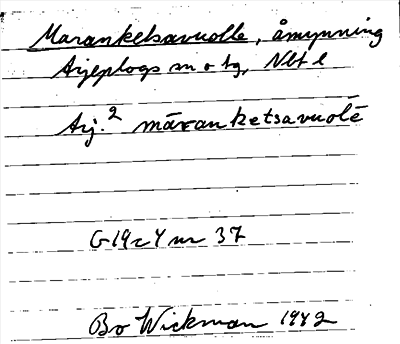 Marankelsavuolle, åmynning
Arjeplogs sn o tg, Nbt l
Arj.² māranketsavuolē
G19c4 nr 37
Bo Wickman 1942